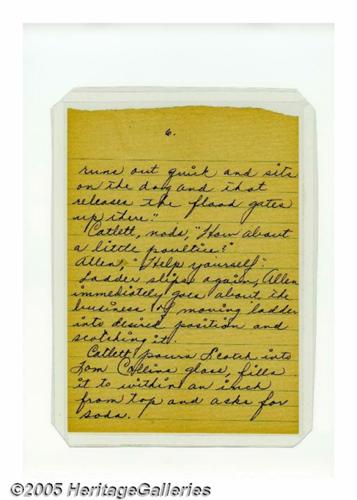 6.
runs out quick and sits
on the dog and that
releases the flood gates
up there."
Catlett, nods, "How about
a little poultice?"
Allen, "Help yourself."
Ladder slips again, Allen
immediately goes about the
business of moving ladder
into desired position and
scotching it.
Catlett pours Scotch into
Tom Collins glass, fills
it to within an inch
from top and asks for
soda.
©2005 HeritageGalleries